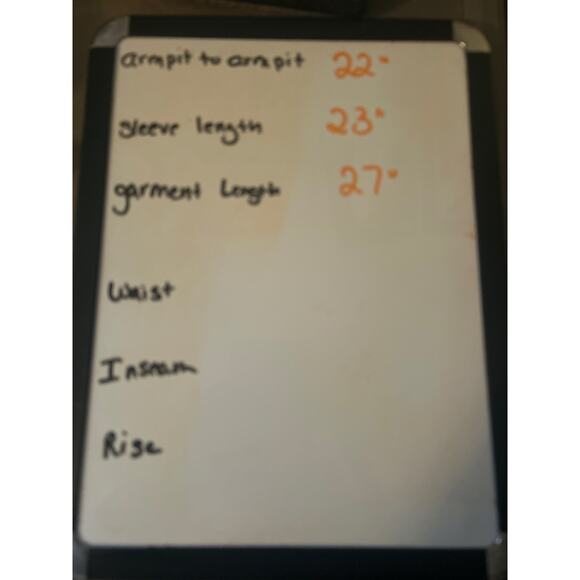 armpit to armpit 22"
sleeve length 23"
garment Length 27"
Waist
Inseam
Rise